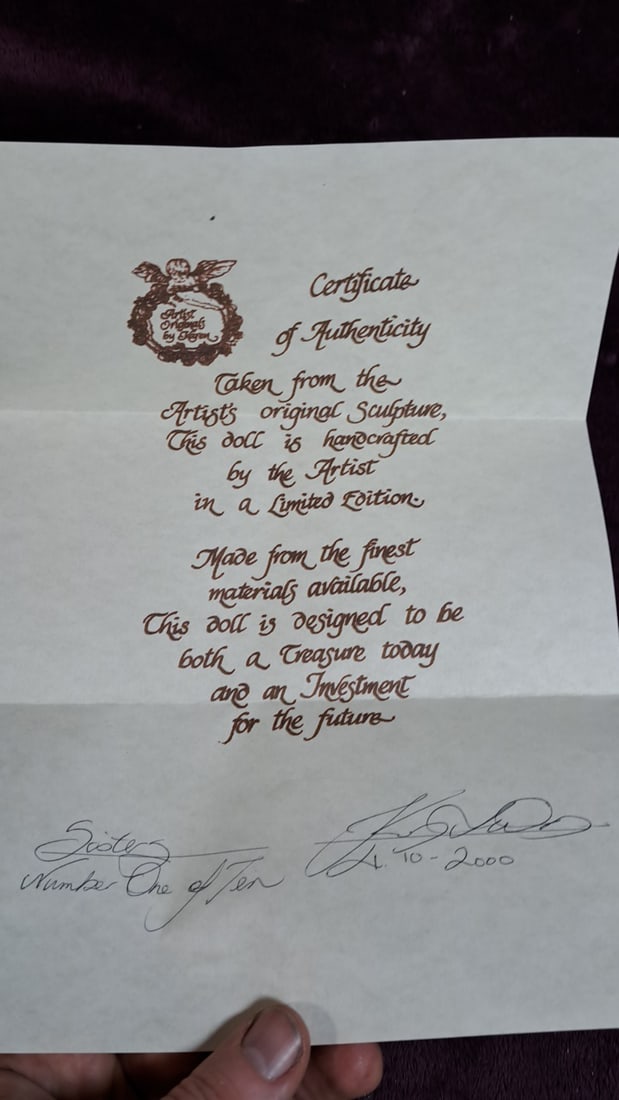 Artist
Originals
by Karen
Certificate
of Authenticity
Taken from the
Artist's original Sculpture,
This doll is handcrafted
by the Artist
in a Limited Edition.
Made from the finest
materials available,
This doll is designed to be
both a Treasure today
and an Investment
for the future
Sisters
Number One of Ten
4.10-2000